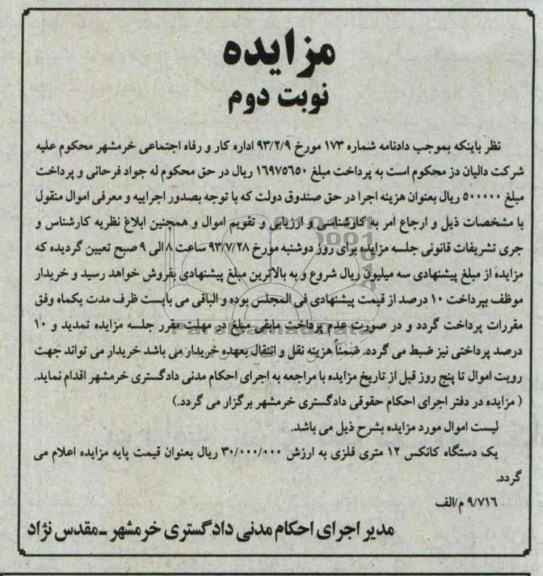 مزایده
نوبت دوم
نظر باینکه بموجب دادنامه شماره ۱۷۳ مورخ ۹۳/۲/۹ اداره کار و رفاه اجتماعی خرمشهر محکوم علیه
شرکت دالیان دز محکوم است به پرداخت مبلغ ۱۶۹۷۵۶۵۰ ریال در حق محکوم له جواد فرحانی و پرداخت
مبلغ ۵۰۰۰۰۰ ریال بعنوان هزینه اجرا در حق صندوق دولت که با توجه بصدور اجراییه و معرفی اموال منقول
با مشخصات ذیل و ارجاع امر به کارشناسی و ارزیابی و تقویم اموال و همچنین ابلاغ نظریه کارشناس و
جری تشریفات قانونی جلسه مزایده برای روز دوشنبه مورخ ۹۳/۷/۲۸ ساعت ۸ الی ۹ صبح تعیین گردیده که
مزایده از مبلغ پیشنهادی سه میلیون ریال شروع و به بالاترین مبلغ پیشنهادی بفروش خواهد رسید و خریدار
موظف بپرداخت ۱۰ درصد از قیمت پیشنهادی فی المجلس بوده و الباقی می بایست ظرف مدت یکماه وفق
مقررات پرداخت گردد و در صورت عدم پرداخت مابقی مبلغ در مهلت مقرر جلسه مزایده تمدید و ۱۰
درصد پرداختی نیز ضبط می گردد. ضمناً هزینه نقل و انتقال بعهده خریدار می باشد خریدار می تواند جهت
رویت اموال تا پنج روز قبل از تاریخ مزایده با مراجعه به اجرای احکام مدنی دادگستری خرمشهر اقدام نماید.
( مزایده در دفتر اجرای احکام حقوقی دادگستری خرمشهر برگزار می گردد.)
لیست اموال مورد مزایده بشرح ذیل می باشد.
یک دستگاه کانکس ۱۲ متری فلزی به ارزش ۳۰/۰۰۰/۰۰۰ ریال بعنوان قیمت پایه مزایده اعلام می
گردد.
۹/۷۱۶ م/الف
مدیر اجرای احکام مدنی دادگستری خرمشهر ـ مقدس نژاد